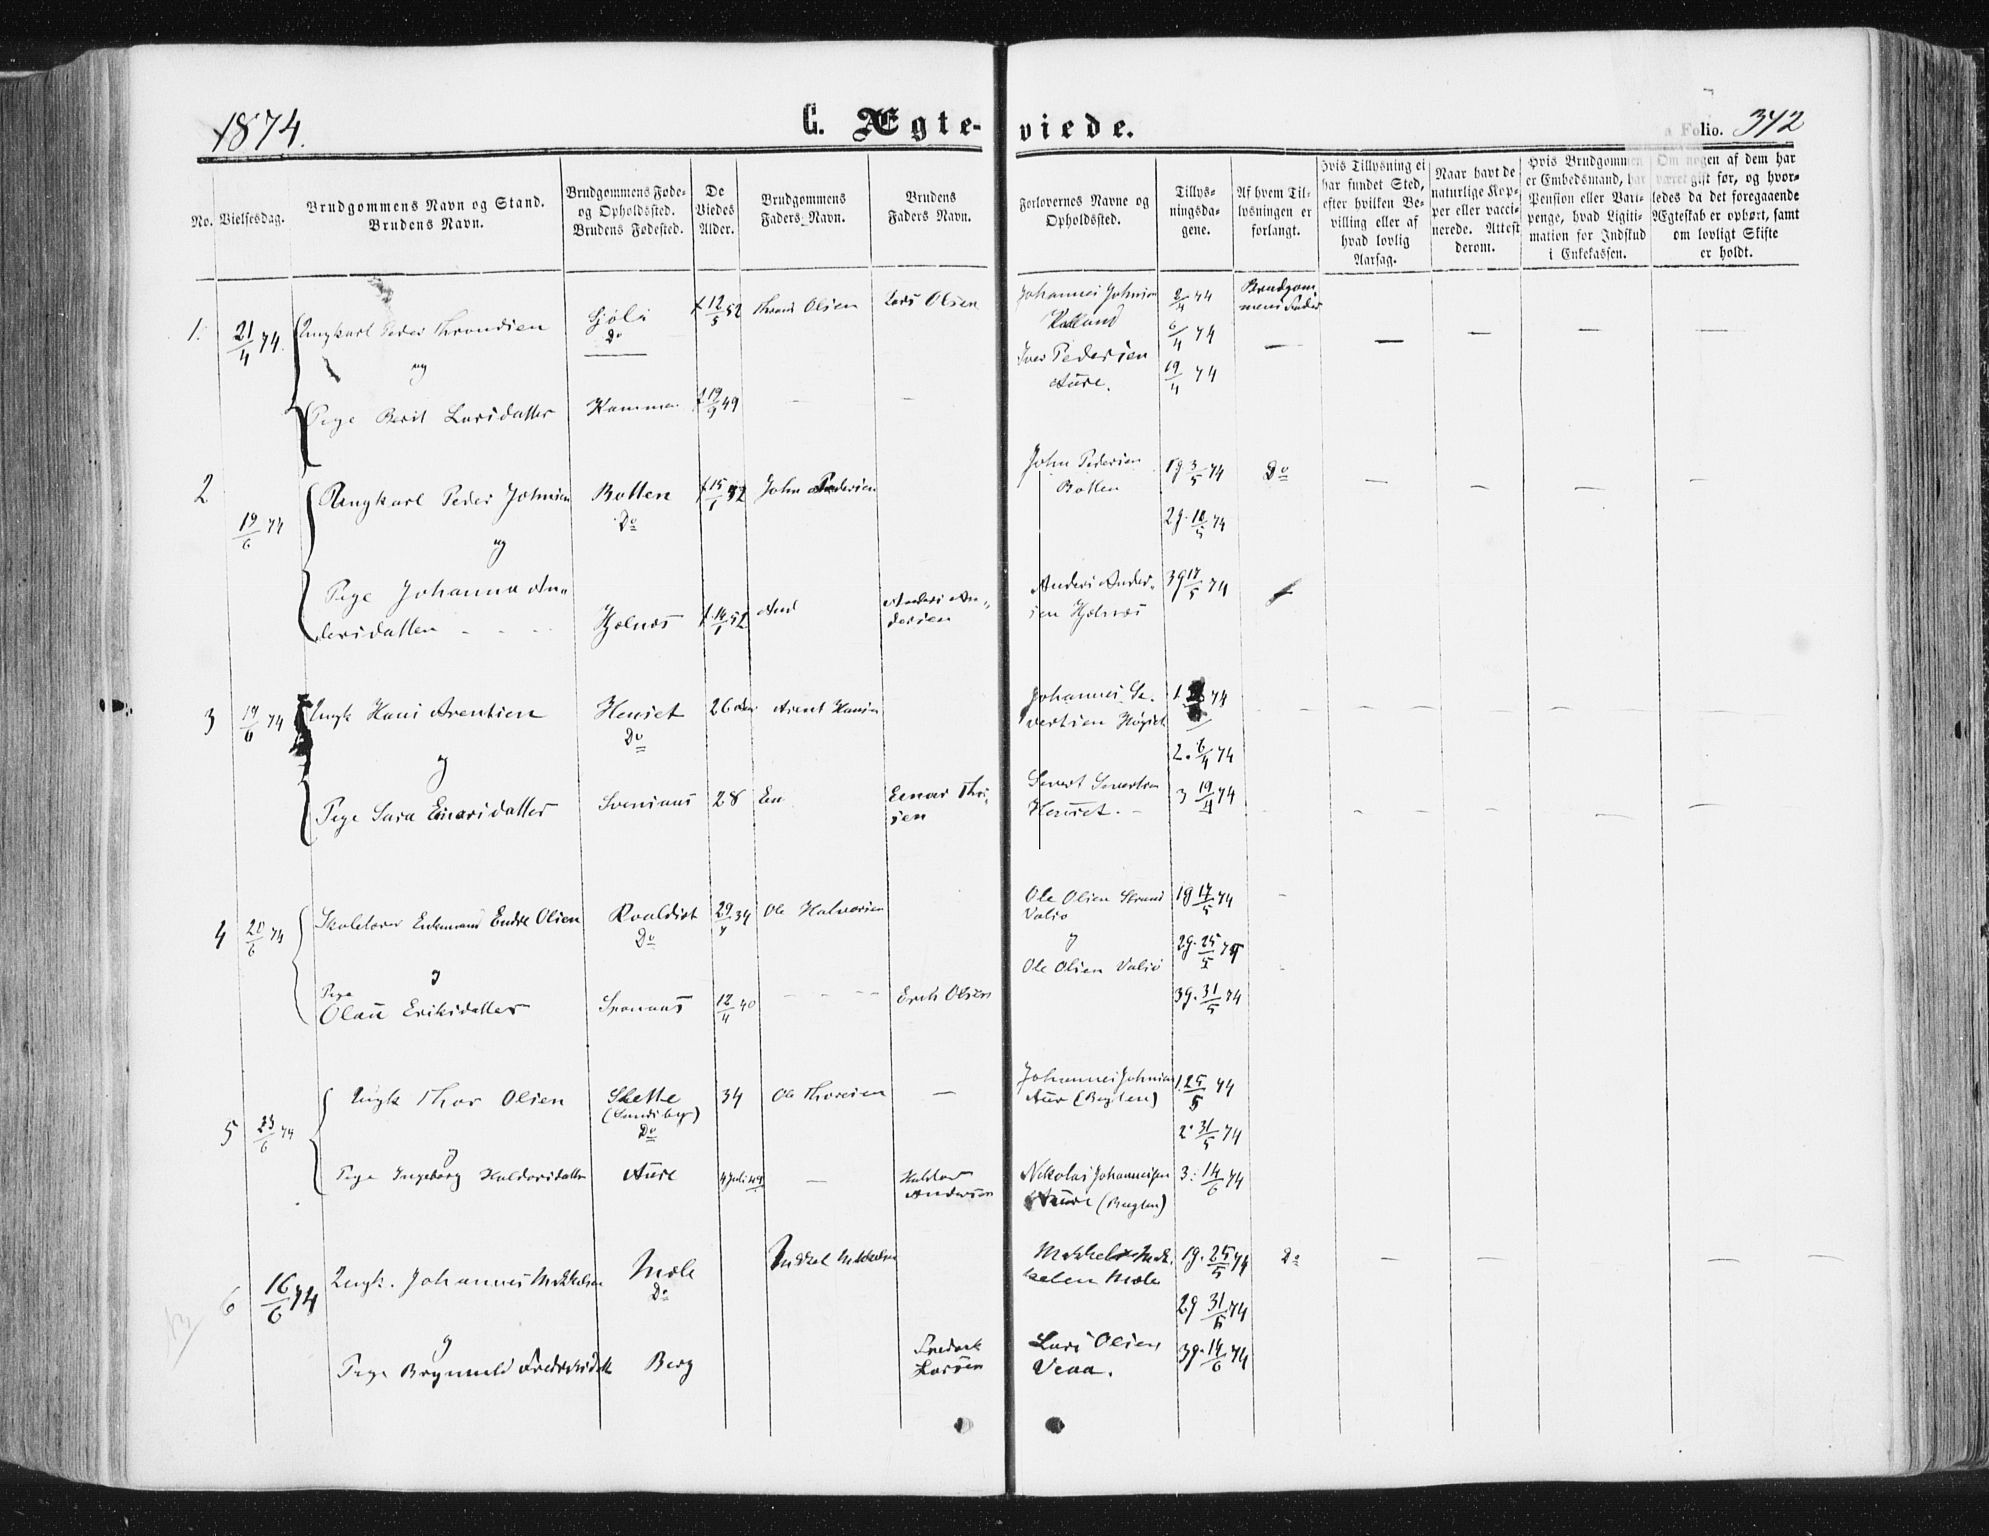 1874.
C. Ægte-
viede.
Folio. 342
No.
Vielsesdag.
Brudgommens Navn og Stand.
Brudens Navn.
Brudgommens Føde-
og Opholdssted.
Brudens Fødested.
De
Viedes
Alder.
Brudgommens
Faders Navn.
Brudens
Faders Navn.
Forlovernes Navne og
Opholdssted.
Tillys-
ningsda-
gene.
Af hvem Til-
lysningen er
forlangt.
Hvis Tillysning ei
har fundet Sted,
efter hvilken Be-
villing eller af
hvad lovlig
Aarsag.
Naar havt de
naturlige Kop-
per eller vacci-
nerede. Attest
derom.
Hvis Brudgommen
er Embedsmand, har
Pension eller Vari-
penge, hvad Ligiti-
mation for Indskud
i Enkekassen.
Om nogen af dem har
været gift før, og hvor-
ledes da det foregaaende
Ægteskab er ophørt, samt
om lovligt Skifte
er holdt.
1. 21/4 74. Ungkarl Peder Throndsen
Do
12/5 52 Olsen Lars Olsen
Johannes Johnsen
2/4 74
6/4 74
19/4 74
Brudgom-
mens Fader
og
Pige Berit Larsdatter
49
Iver Pedersen
Aure.
2 19/6 74 Ungkarl Peder Johnsen Botten
Do
52 John Pedersen
John Pedersen
Botten
1g 3/5 74 Do
2g. 10/5 74
og
Pige Johanna An-
dersdatter Hjelnes 52 And Anders An-
dersen
Anders Ander-
sen Hjelnes
3g 17/5 74
3 74 Ungk Hans Arentsen Henset
Do
26 Arent Hansen
Johannes Se-
vertsen
1. 74
2. 6/4 74
og
Pige Sara Einarsdatter 28 Ein Einar
sen
Severt Severtsen
Henset.
3 19/4 74
4 20/6 74 Skolelærer Enkemand Endre Olsen
Do
29 34 Ole Halvorsen
Ole Olsen Strand
Valsø
1g 17/5 74
og
Pige
Olau Eriksdatter 12/4 40 Erik Olsen
og
Ole Olsen Valsø
2g. 25/5 74
3g. 31/5 74
5 23/6 74 Ungk Thor Olsen Slette
(Sundsby)
Do
34 Ole Thoresen
Johannes Johnsen
Aure (Bugten)
1. 25/5 74
2. 31/5 74
og
Pige Ingeborg Haldorsdatter Aure 4 Juli 49 Haldor
Andersen
Nikolai Johannessen
Aure (Bugten)
3: 14/6 74
6 16/6 74 Ungk. Johannes Mikkelsen Mæle
Do
Mikkel Mikkelsen
Mikkel Mik-
kelsen Mæle
1g. 25/5 74 Do
2g 31/5 74
og
Pige Brynnild Fredriksdatt Berg Fredrik
Larsen
Lars Olsen
Veaa.
3g. 14/6 74